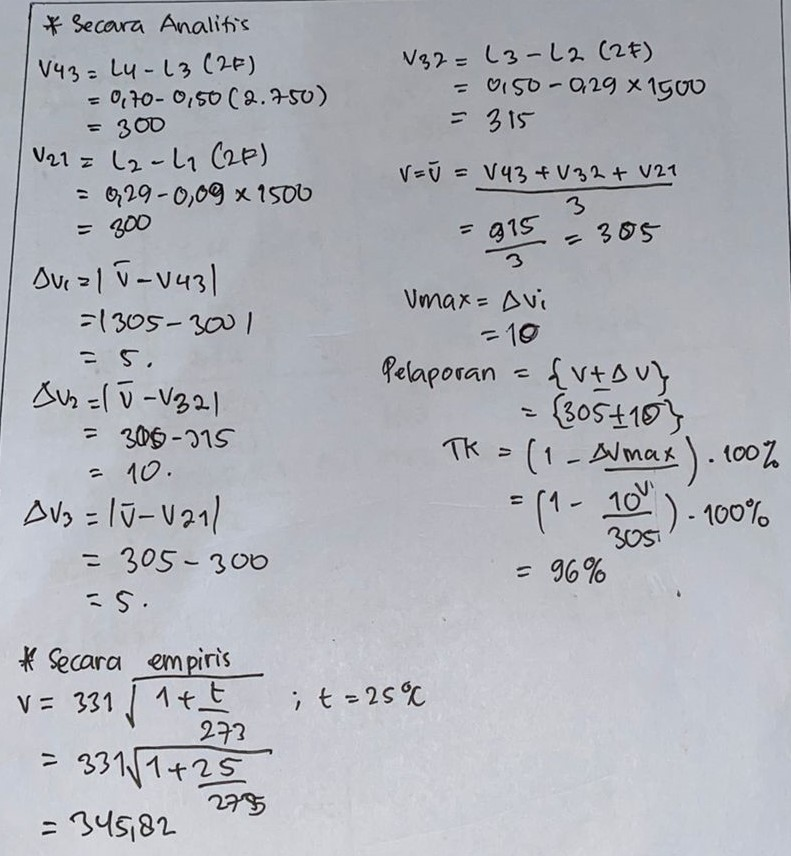 * Secara Analitis
V43 = L4 - L3 (2F)
= 0,70 - 0,50 (2.750)
= 300
V21 = L2 - L1 (2F)
= 0,29 - 0,09 x 1500
= 300
ΔV1 = | V̄ - V43 |
= | 305 - 300 |
= 5.
ΔV2 = | V̄ - V32 |
= 305 - 315
= 10.
ΔV3 = | V̄ - V21 |
= 305 - 300
= 5.
V32 = L3 - L2 (2F)
= 0,50 - 0,29 x 1500
= 315
V = V̄ = V43 + V32 + V21 / 3
= 915 / 3 = 305
Vmax = ΔVi
= 10
Pelaporan = {V ± ΔV}
= {305 ± 10}
TK = (1 - ΔVmax / Vi) . 100%
= (1 - 10 / 305) . 100%
= 96%
* Secara empiris
V = 331 √1 + t / 273 ; t = 25°C
= 331 √1 + 25 / 273
= 345,82